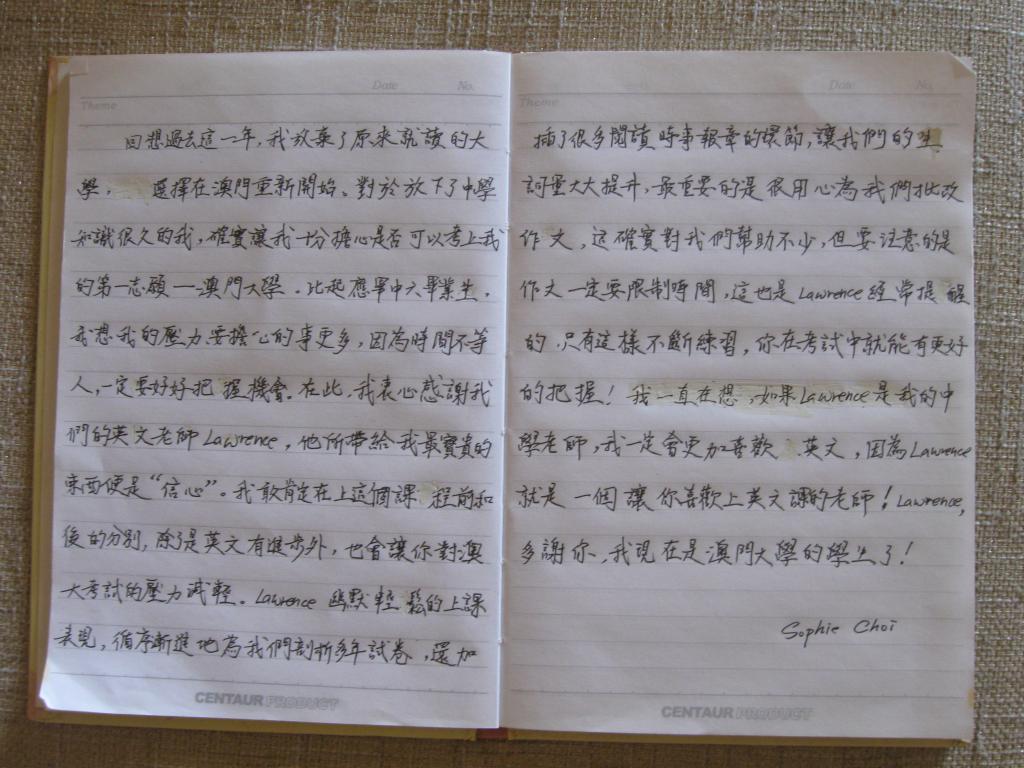 Date No.
Theme
回想過去這一年，我放棄了原來就讀的大
學， 選擇在澳門重新開始。對於放下了中學
知識很久的我，確實讓我十分擔心是否可以考上我
的第一志願——澳門大學。比起應畢中六畢業生，
我想我的壓力要擔心的事更多，因為時間不等
人，一定要好好把握機會。在此，我衷心感謝我
們的英文老師Lawrence，他所帶給我最寶貴的
東西便是“信心”。我敢肯定在上這個課程前和
後的分別，除了是英文有進步外，也會讓你對澳
大考試的壓力減輕。Lawrence 幽默輕鬆的上課
表現，循序漸進地為我們剖析多年試卷，還加
CENTAUR PRODUCT
Date No.
Theme
插了很多閱讀時事報章的環節，讓我們的生
詞量大大提升，最重要的是很用心為我們批改
作文，这確實對我們幫助不少，但要注意的是
作文一定要限制時間，這也是Lawrence經常提醒
的，只有這樣不斷練習，你在考試中就能有更好
的把握！我一直在想，如果Lawrence是我的中
學老師，我一定會更加喜歡英文，因為Lawrence
就是一個讓你喜歡上英文課的老師！Lawrence，
多謝你，我現在是澳門大學的學生了！
Sophie Choi
CENTAUR PRODUCT